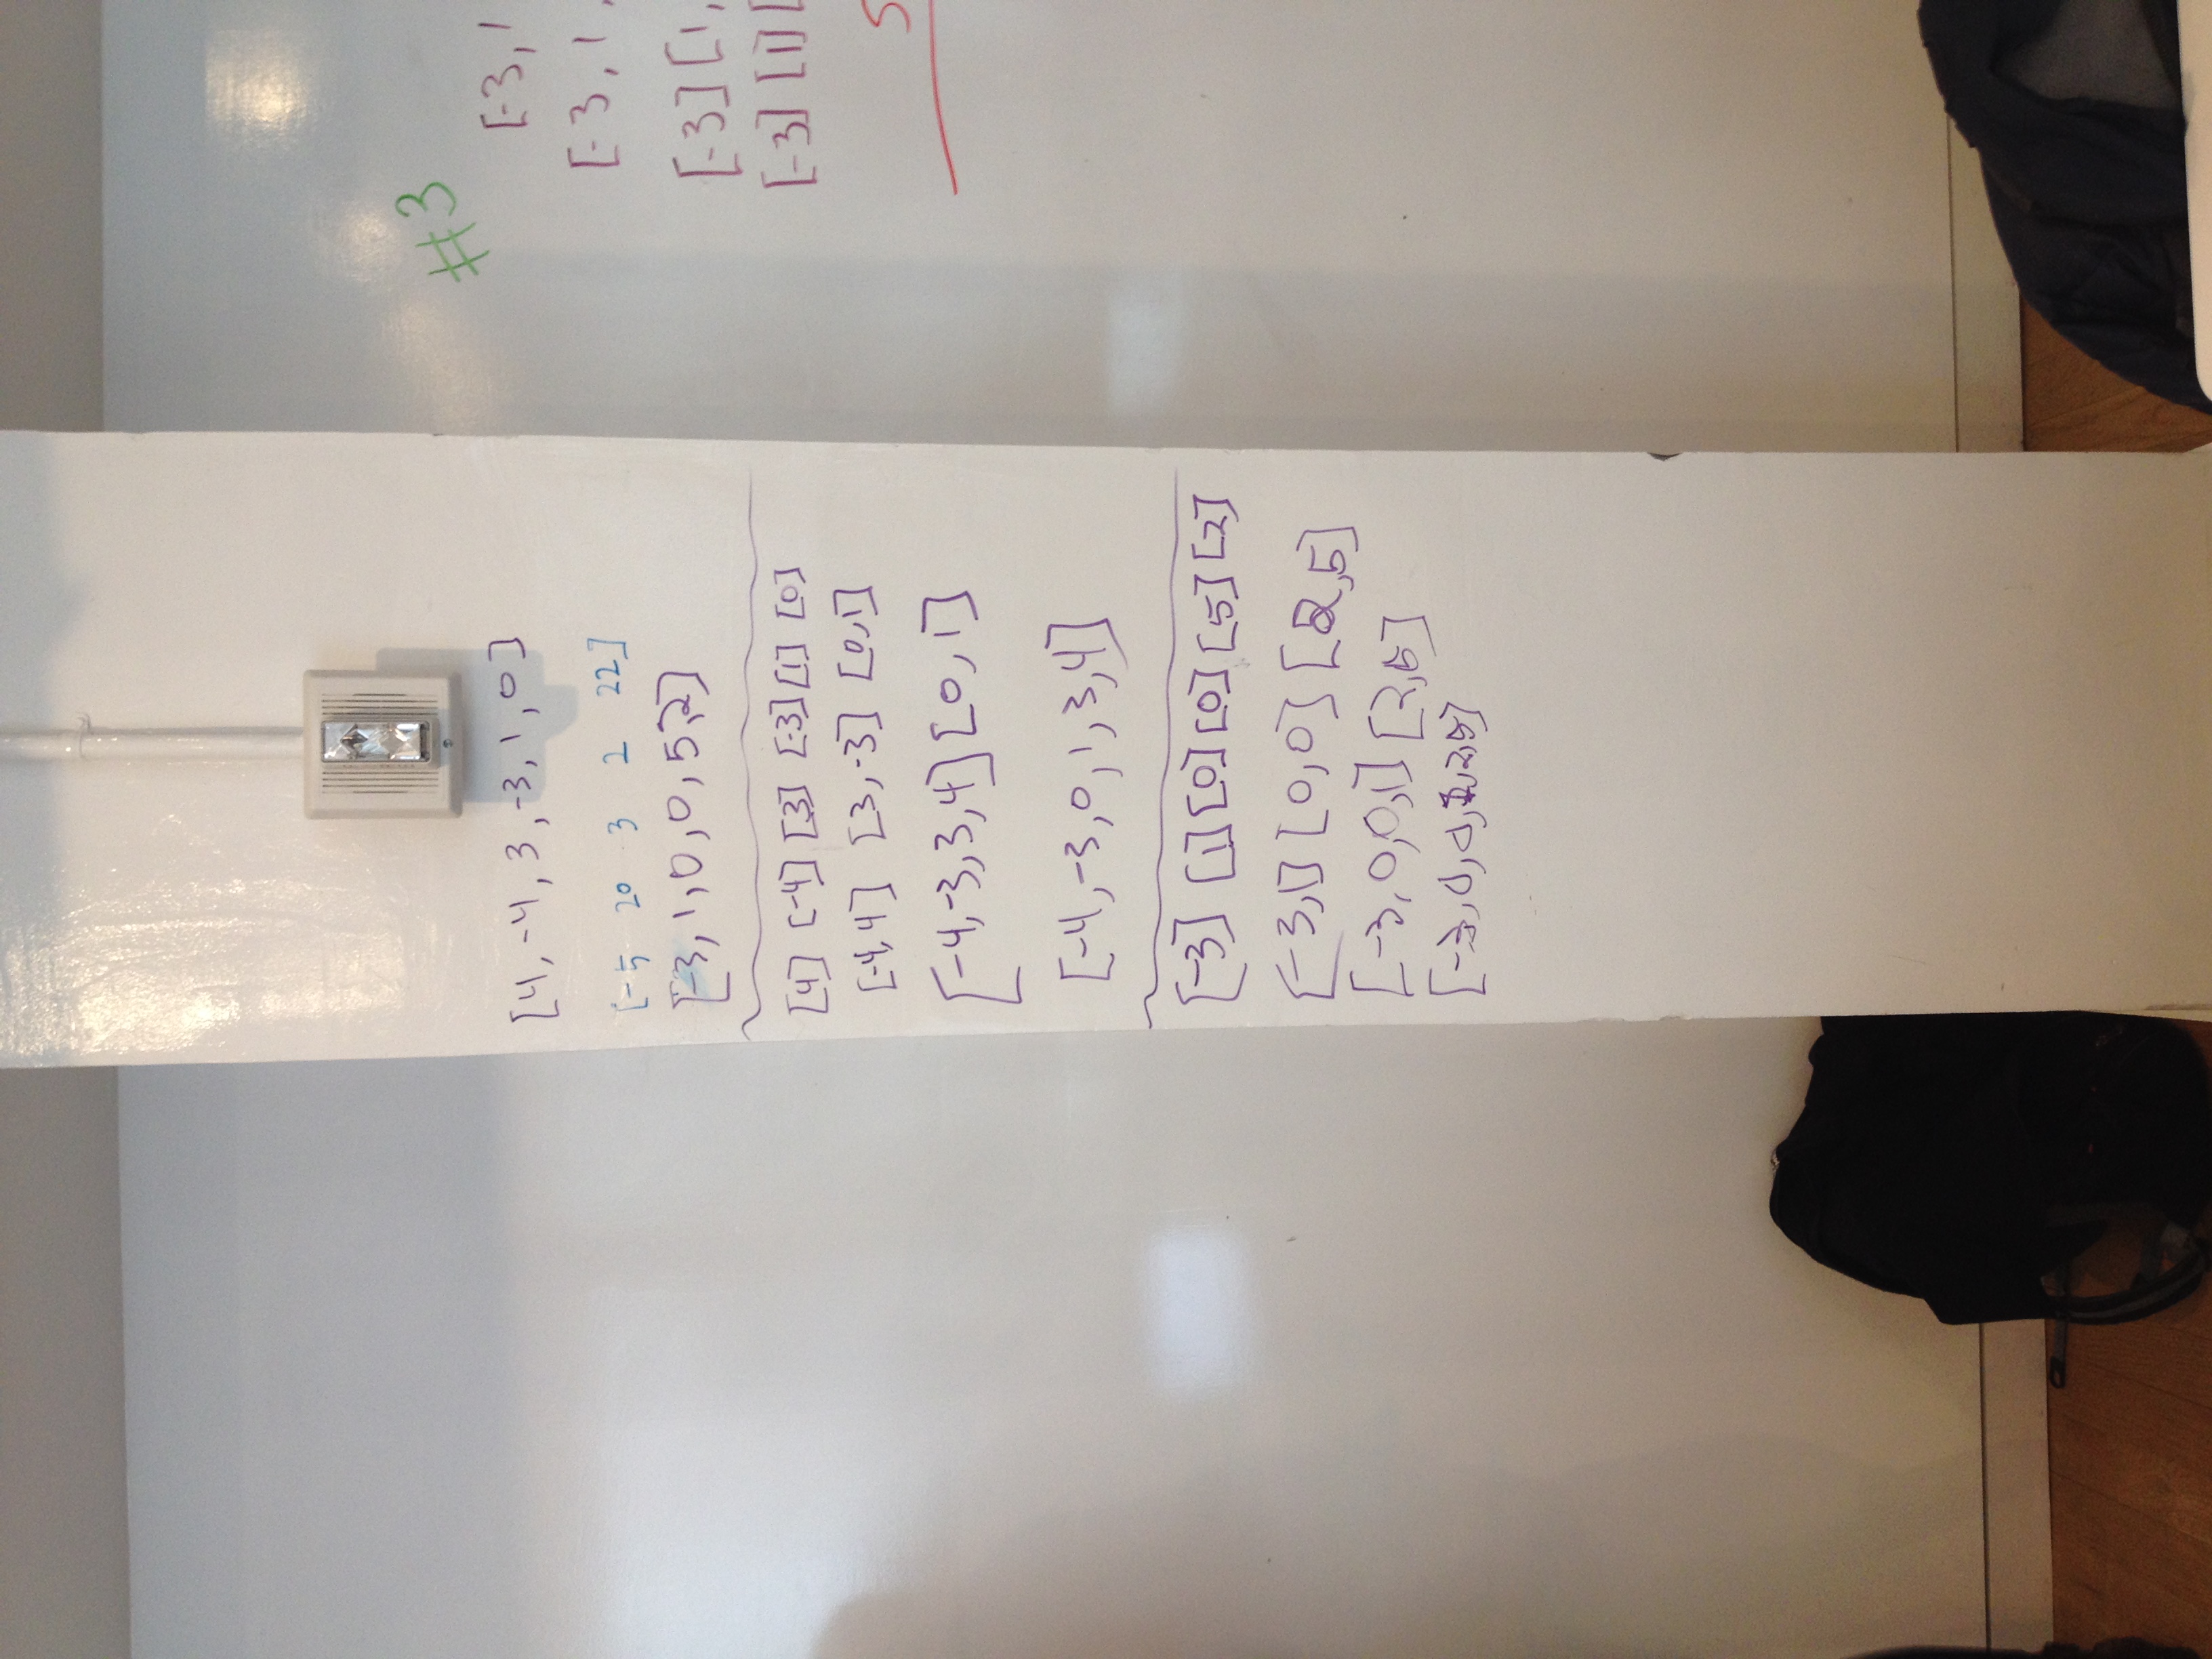 [4, -4, 3, -3, 1, 0]
[-5 20 3 2 22]
[-3, 1, 0, 0, 5, 2]
[4] [-4] [3] [-3] [1] [0]
[-4, 4] [3, -3] [0, 1]
[-4, -3, 3, 4] [0, 1]
[-4, -3, 0, 1, 3, 4]
[-3] [1] [0] [0] [5] [2]
[-3, 1] [0, 0] [2, 5]
[-3, 0, 0, 1] [2, 5]
[-3, 0, 0, 1, 2, 5]
#3
[-3, 1
[-3, 1,
[-3] [1,
[-3] [1] [
S